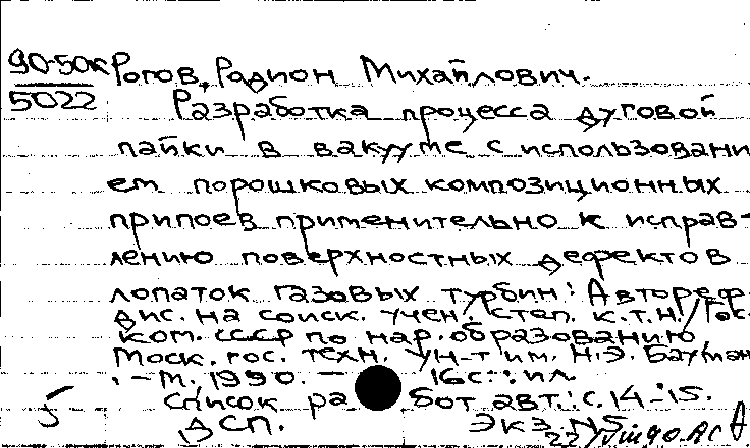 90-50к Рогов, Радион Михайлович.
5022 Разработка процесса дуговой
пайки в вакууме с использовани-
ем порошковых композиционных
припоев применительно к исправ-
лению поверхностных дефектов
лопаток газовых турбин: Автореф.
дис. на соиск. учен. степ. к.т.н. / Гос.
ком. СССР по нар. образованию,
Моск. гос. техн. ун-т им. Н.Э. Бауман
. - М., 1990. - 16с.: ил.
Список ра бот авт.: с. 14-15.
ДСП. Экз. N5
5